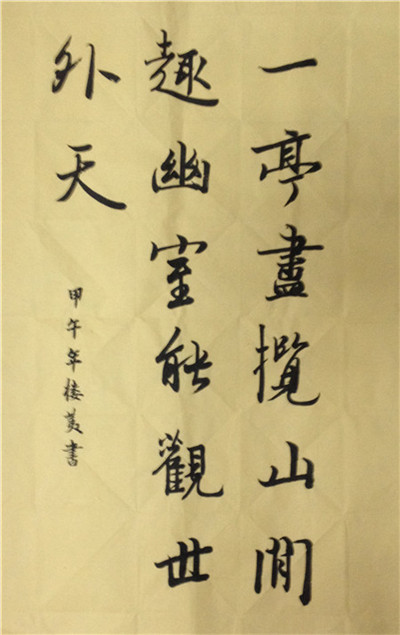 一亭盡攬山間
趣幽室能觀世
外天
甲午年楼英書